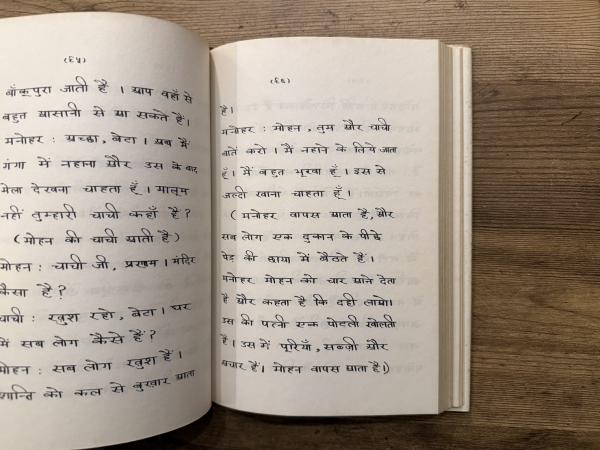 (६५)
बाँकूपुरा जाती है । आप वहाँ से
बहुत आसानी से आ सकते हैं।
मनोहर : अच्छा, बेटा । अब मैं
गंगा में नहाना और उस के बाद
मेला देखना चाहता हूँ । मालूम
नहीं तुम्हारी चाची कहाँ हैं ?
(मोहन की चाची आती हैं)
मोहन : चाची जी, प्रणाम । मंदिर
कैसा है ?
चाची : खुश रहो, बेटा । घर
में सब लोग कैसे हैं ?
मोहन : सब लोग खुश हैं ।
शान्ति को कल से बुखार आता
(६६)
है।
मनोहर : मोहन, तुम और चाची
बातें करो । मैं नहाने के लिये जाता
हूँ । मैं बहुत भूखा हूँ । इस से
जल्दी खाना चाहता हूँ ।
(मनोहर वापस आता है, और
सब लोग एक दुकान के पीछे
पेड़ की छाया में बैठते हैं।
मनोहर मोहन को चार आने देता
है और कहता है कि दही लाओ।
उस की पत्नी एक पोटली खोलती
है। उस में पूरियाँ, सब्ज़ी और
अचार हैं। मोहन वापस आता है।)